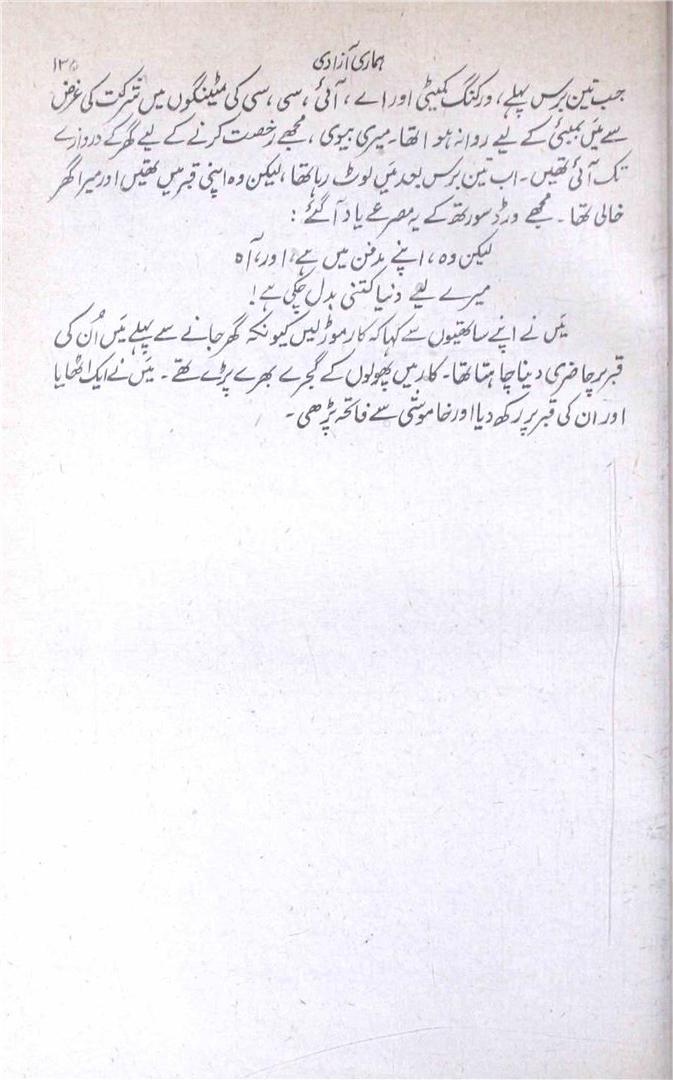 ہماری آزادی
جب تین برس پہلے، ورکنگ کمیٹی اور اے، آئی، سی، سی کی میٹینگوں میں شرکت کی غرض
سے میں بمبئی کے لیے روانہ ہوا تھا۔ میری بیوی، مجھے رخصت کرنے کے لیے گھر کے دروازے
تک آئی تھیں۔ اب تین برس بعد میں لوٹ رہا تھا، لیکن وہ اپنی قبر میں تھیں اور میرا گھر
خالی تھا۔ مجھے ورڈسورتھ کے یہ مصرعے یاد آگئے:
لیکن وہ، اپنے مدفن میں ہے، اور، آہ
میرے لیے دنیا کتنی بدل چکی ہے!
میں نے اپنے ساتھیوں سے کہا کہ کار موڑ لیں کیونکہ گھر جانے سے پہلے میں اُن کی
قبر پر حاضری دینا چاہتا تھا۔ کار میں پھولوں کے گجرے بھرے پڑے تھے۔ میں نے ایک اٹھایا
اور ان کی قبر پر رکھ دیا اور خاموشی سے فاتحہ پڑھی۔